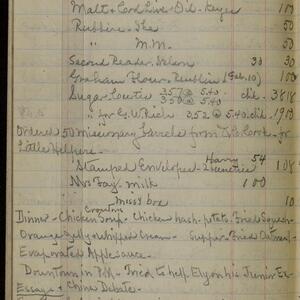 Malt + Cod Live Oil - Keyes 100
Rubbine - Ike 50
" M.M. 50
Second Reader - Nelson 30 30
Graham Flour - Rueblin (Feb. 10) 100
Sugar Lowtie 357 @ 5.40 clk. 3818
350 @ 5.40
" for G.W. Rich 352 @ 5.40 clk. 1900
Ordered 50 Missionary barrels from
Little Helpers -
Stamped Envelopes - Harry 54 108
Mrs Fay - Milk 100
Miss box 10
Croutons
Dinner - Chicken Soup - Chicken hash - potato. Fried Squash
Orange Jelly + Whipped Cream - Supper - Fried Oatmeal -
Evaporated Applesauce.
Downtown in P.M. - Tried to help Elyon his Junior Ex-
Essay - China Debate -